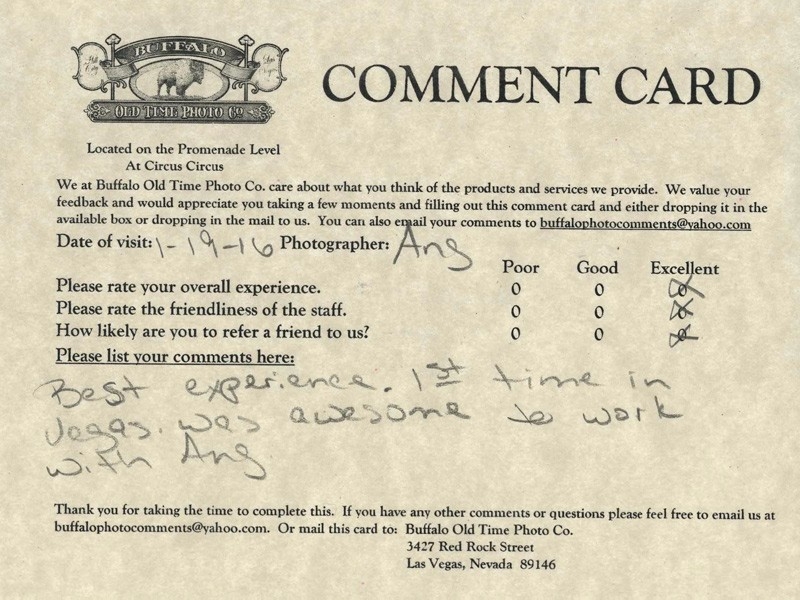 BUFFALO
OLD TIME PHOTO Co
COMMENT CARD
Located on the Promenade Level
At Circus Circus
We at Buffalo Old Time Photo Co. care about what you think of the products and services we provide. We value your
feedback and would appreciate you taking a few moments and filling out this comment card and either dropping it in the
available box or dropping in the mail to us. You can also email your comments to buffalophotocomments@yahoo.com
Date of visit: 1-19-16 Photographer: Ang
Poor Good Excellent
Please rate your overall experience. 0 0 0
Please rate the friendliness of the staff. 0 0 0
How likely are you to refer a friend to us? 0 0 0
Please list your comments here:
Best experience. 1st time in
Vegas. was awesome to work
with Ang
Thank you for taking the time to complete this. If you have any other comments or questions please feel free to email us at
buffalophotocomments@yahoo.com. Or mail this card to: Buffalo Old Time Photo Co.
3427 Red Rock Street
Las Vegas, Nevada 89146